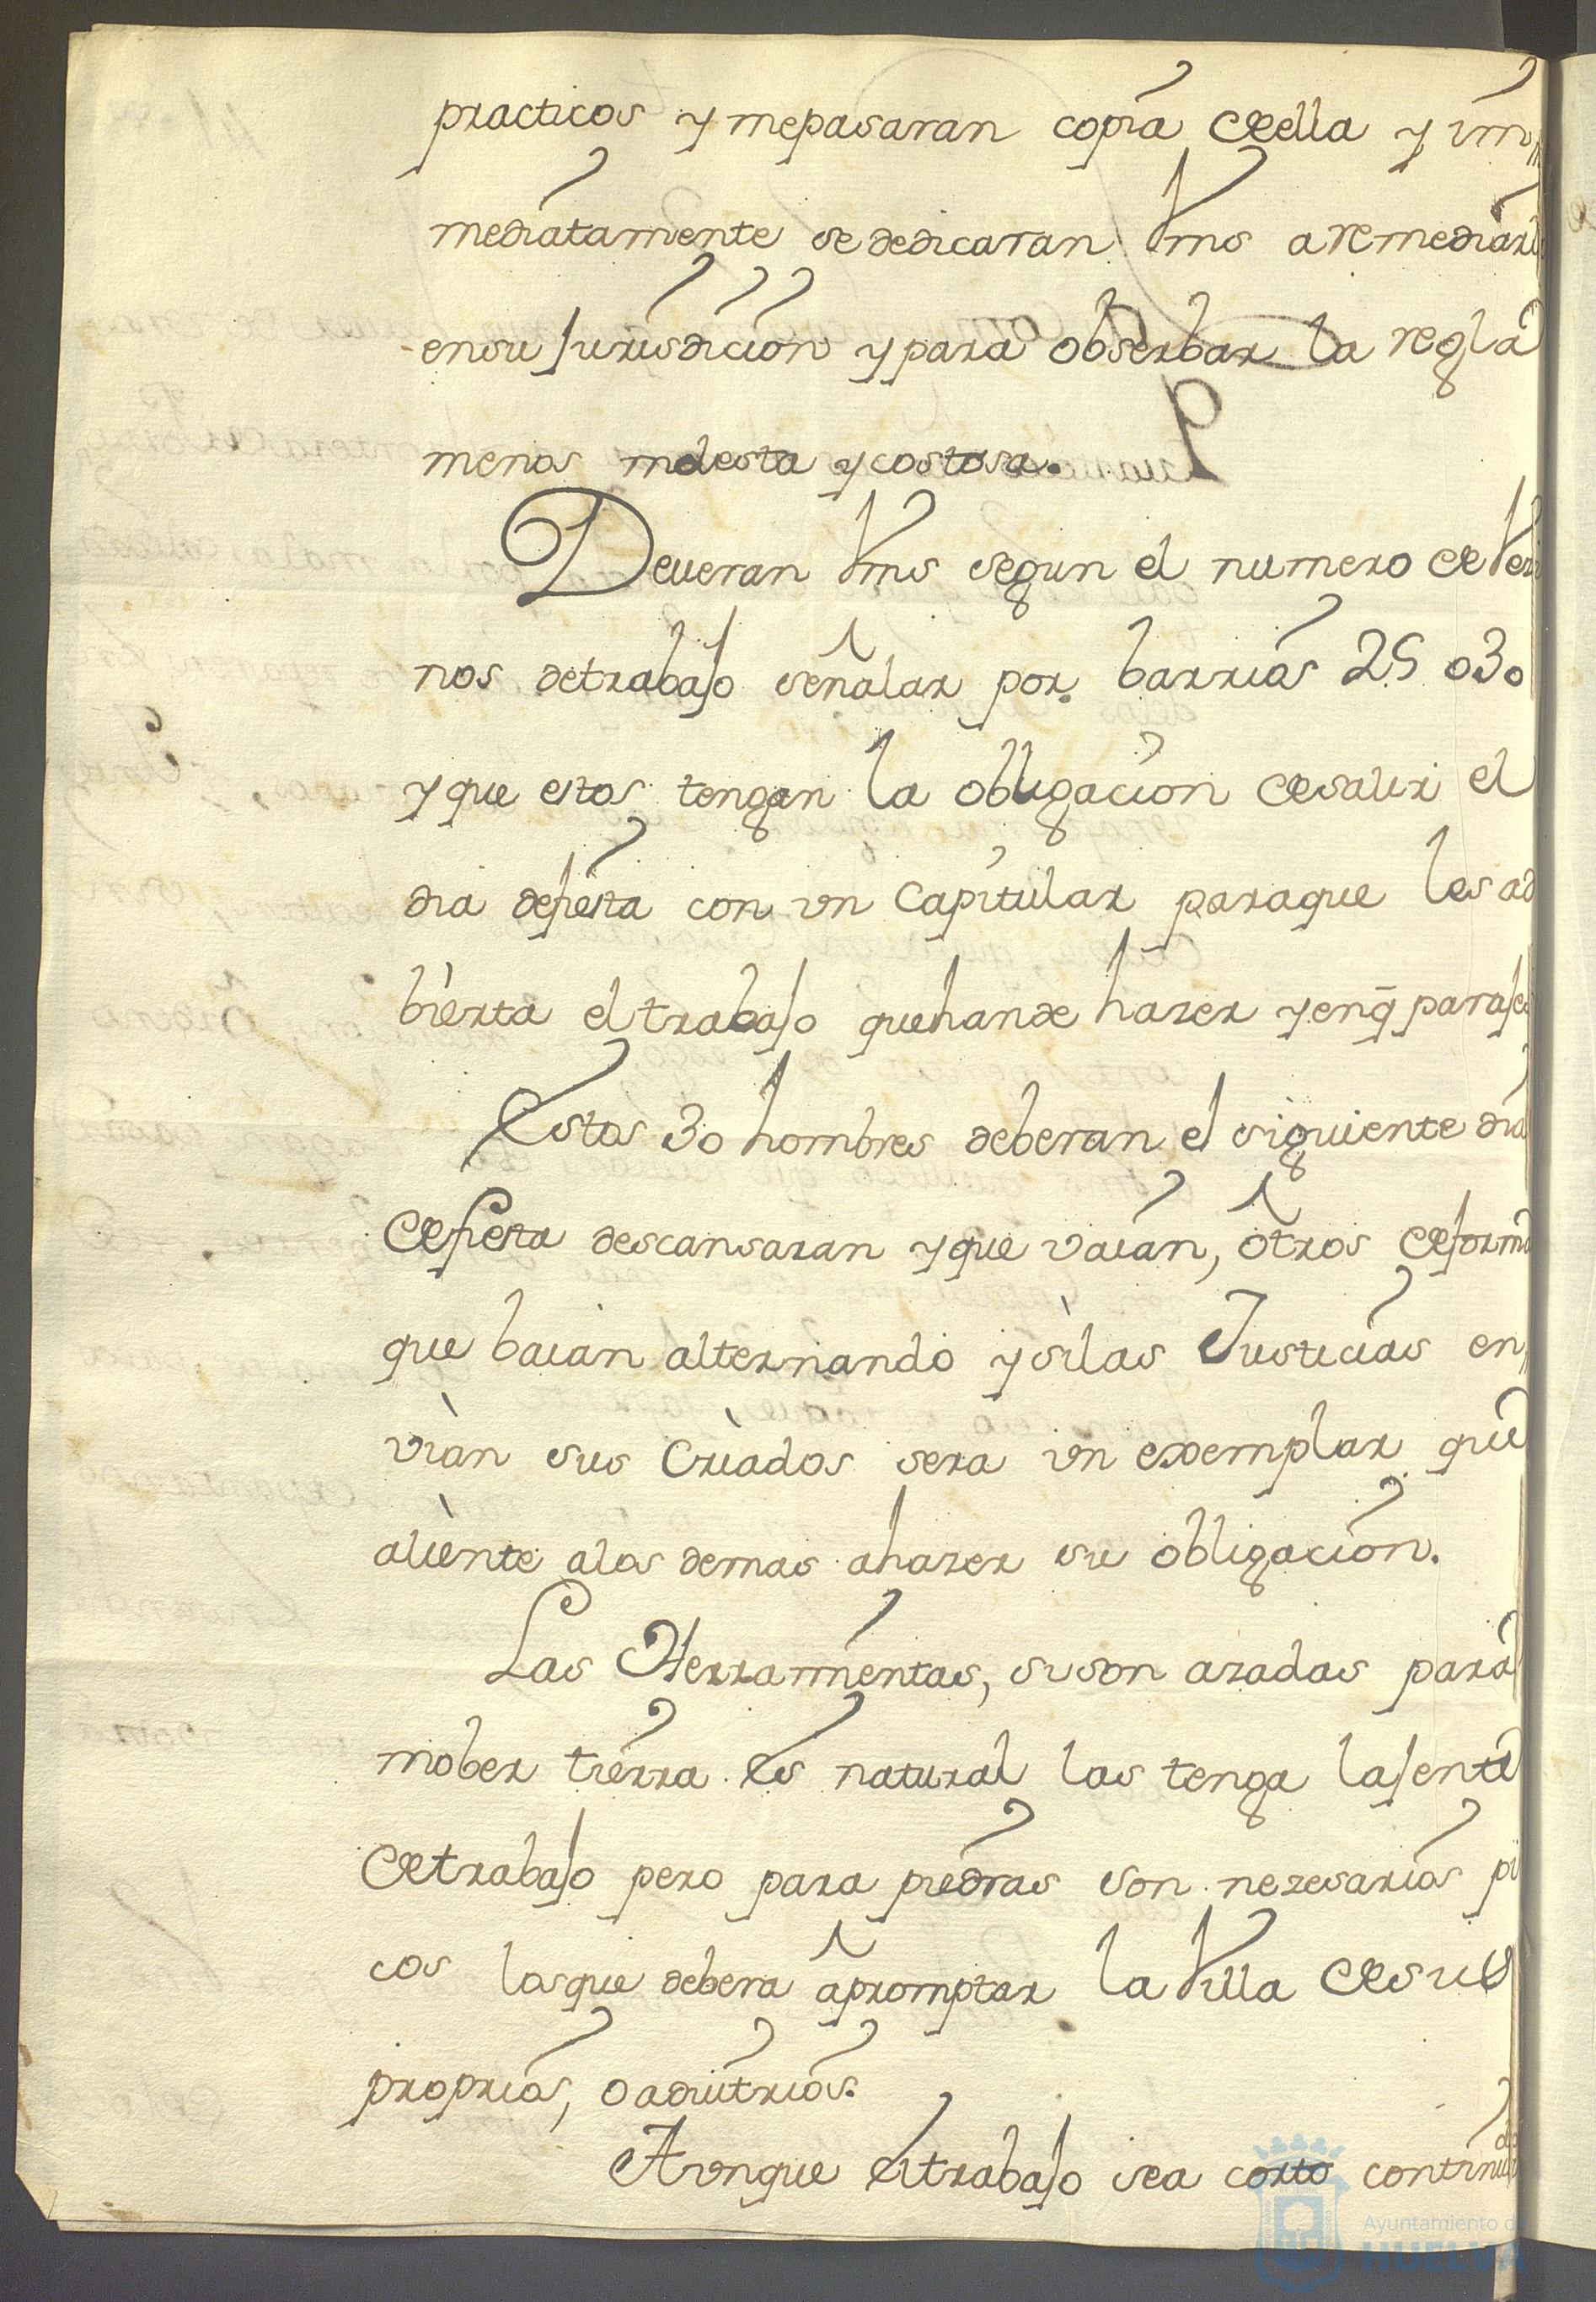 practicos y mepasaran copia deella y im
mediatamente sededicaran Vms aremediarl
ensu Jurisdicion y para obserbar la regla
menos molesta y costosa.
Deveran Vms segun el numero de Vezi
nos detrabajo señalar por barrios 25 o 30
y que estos tengan la obligacion desalir el
dia defiesta con un Capitular paraque les ad
bierta eltrabajo quehande hazer y enq̄ paraje
Estos 30 hombres deberan el siguiente dia
defiesta descansaran y que vaian, otros deforma
que baian alternando y silas Justicias en
vian sus Criados sera un exemplar que
aliente alos demas ahazer su obligacion.
Las Herramientas, si son azadas para
mober tierra es natural las tenga lajente
detrabajo pero para piedras son nezesarios pi
cos losque debera apromptar la Villa desus
proprios, o aduitrios.
Aunque eltrabajo sea corto continuado
Ayuntamiento de
HUELVA